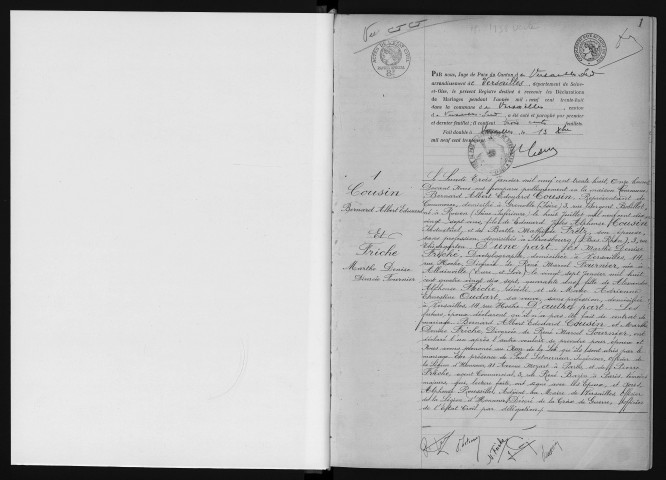 1
Par nous, Juge de Paix du Canton de Versailles Sud
arrondissement de Versailles, département de Seine-
et-Oise, le présent Registre destiné à recevoir les Déclarations
de Mariages pendant l'année mil neuf cent trente-huit
dans la commune de Versailles, canton
de Versailles Sud a été coté et paraphé par premier
et dernier feuillet; il contient trois cents feuillets.
Fait double à Versailles, le 13
mil neuf cent trente-sept
1
Cousin
Bernard Albert Edouard
Et
Friche
Marthe Denise
divorcée Fournier
Le Lundi trois janvier mil neuf cent trente huit, onze heures
Devant Nous ont comparu publiquement en la maison Commune
Bernard Albert Edouard Cousin, Représentant de
Commerce, domicilié à Grenoble (Isère) 3, rue
né à Rouen (Seine Inférieure) le huit juillet mil neuf cent
vingt sept ans, fils de Edouard Jules Alphonse Cousin
et de Berthe Mathilde Fritz, son épouse,
sans profession, domiciliés à Strasbourg (Bas Rhin), 3, rue
D'une part. Et Marthe Denise
Friche, Dactylographe, domiciliée à Versailles, 14,
rue Hoche, Divorcée de René Marcel Fournier, née à
Allainville (Eure et Loir), le vingt sept janvier mil huit
cent quatre vingt dix sept, quarante ans, fille de Alexandre
Alphonse Friche, décédé et de Marie Adrienne
Ernestine Oudart, sa veuve, sans profession, domiciliée
à Versailles, 14 rue Hoche. D'autre part. Les
futurs époux déclarent qu'il n'a pas été fait de contrat de
mariage. Bernard Albert Edouard Cousin et Marthe
Denise Friche, Divorcée de René Marcel Fournier, ont
déclaré l'un après l'autre vouloir se prendre pour époux et
Nous avons prononcé au Nom de la Loi qu'ils sont unis par le
mariage. En présence de Paul Letournier, Ingénieur, Officier de
la Légion d'Honneur, 21 Avenue Mozart à Paris, et de Pierre
Friche, agent Commercial, 3, rue René Bazin à Paris, témoins
majeurs, qui, lecture faite, ont signé avec les époux, et Nous,
Alphonse Rousselle, Adjoint au Maire de Versailles, Officier
de la Légion d'Honneur, Décoré de la Croix de Guerre, Officier
de l'Etat Civil par délégation.